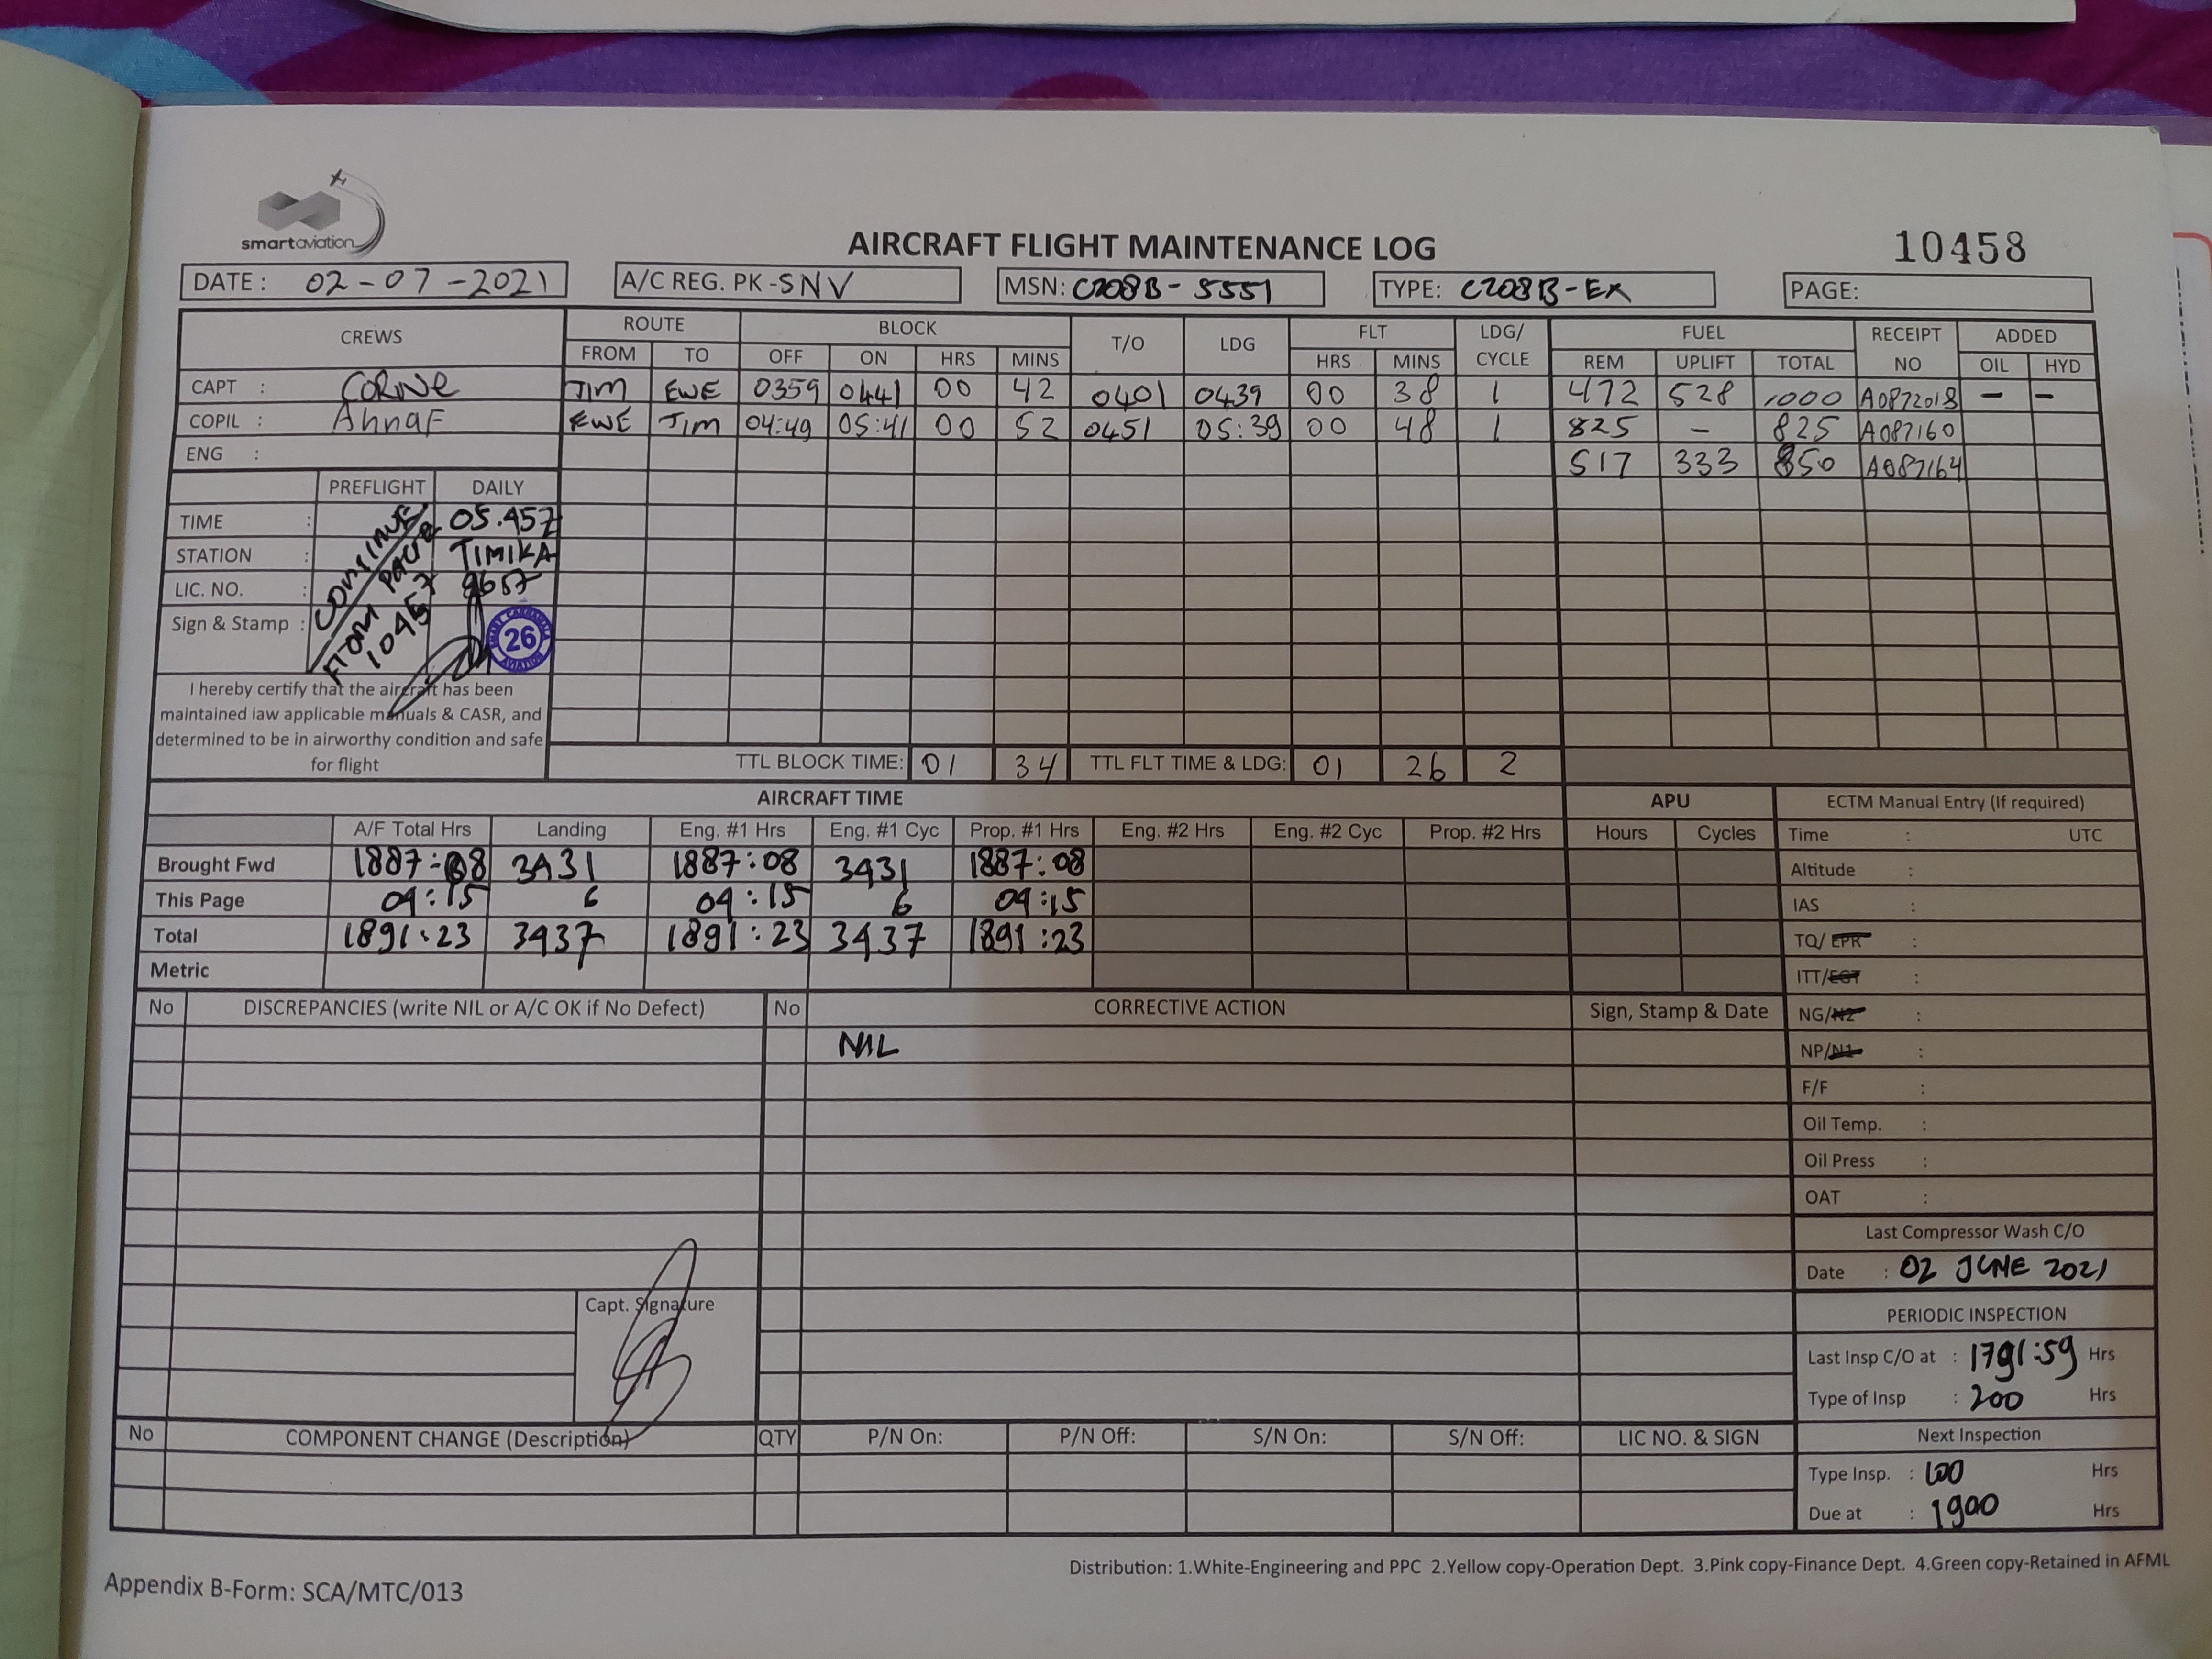 smartaviation
AIRCRAFT FLIGHT MAINTENANCE LOG
10458
DATE : 02-07-2021 A/C REG. PK-SNV MSN: C208B-5551 TYPE: C208B-EX PAGE:
CREWS ROUTE BLOCK T/O LDG FLT LDG/CYCLE FUEL RECEIPT NO ADDED
FROM TO OFF ON HRS MINS HRS MINS REM UPLIFT TOTAL OIL HYD
CAPT : CORNE TIM EWE 0359 0441 00 42 0401 0439 00 38 1 472 528 1000 A0872018 – –
COPIL : AhnaF EWE TIM 04:49 05:41 00 52 0451 05:39 00 48 1 825 – 825 A087160
ENG : 517 333 850 A087164
PREFLIGHT DAILY
TIME : 05.45Z
STATION : TIMIKA
LIC. NO. : 9657
Sign & Stamp :
CONTINUE FROM PAGE 10457
26
AVIATION
I hereby certify that the aircraft has been
maintained iaw applicable manuals & CASR, and
determined to be in airworthy condition and safe
for flight
TTL BLOCK TIME: 01 34 TTL FLT TIME & LDG: 01 26 2
AIRCRAFT TIME APU ECTM Manual Entry (If required)
A/F Total Hrs Landing Eng. #1 Hrs Eng. #1 Cyc Prop. #1 Hrs Eng. #2 Hrs Eng. #2 Cyc Prop. #2 Hrs Hours Cycles Time : UTC
Brought Fwd 1887:08 3431 1887:08 3431 1887:08 Altitude :
This Page 04:15 6 04:15 6 04:15 IAS :
Total 1891:23 3437 1891:23 3437 1891:23 TQ/EPR :
Metric ITT/EGT :
No DISCREPANCIES (write NIL or A/C OK if No Defect) No CORRECTIVE ACTION Sign, Stamp & Date NG/N2 :
NIL NP/N1 :
F/F :
Oil Temp. :
Oil Press :
OAT :
Last Compressor Wash C/O
Date : 02 JUNE 2021
Capt. Signature
PERIODIC INSPECTION
Last Insp C/O at : 1791:59 Hrs
Type of Insp : 200 Hrs
No COMPONENT CHANGE (Description) QTY P/N On: P/N Off: S/N On: S/N Off: LIC NO. & SIGN Next Inspection
Type Insp. : 100 Hrs
Due at : 1900 Hrs
Distribution: 1.White-Engineering and PPC 2.Yellow copy-Operation Dept. 3.Pink copy-Finance Dept. 4.Green copy-Retained in AFML
Appendix B-Form: SCA/MTC/013